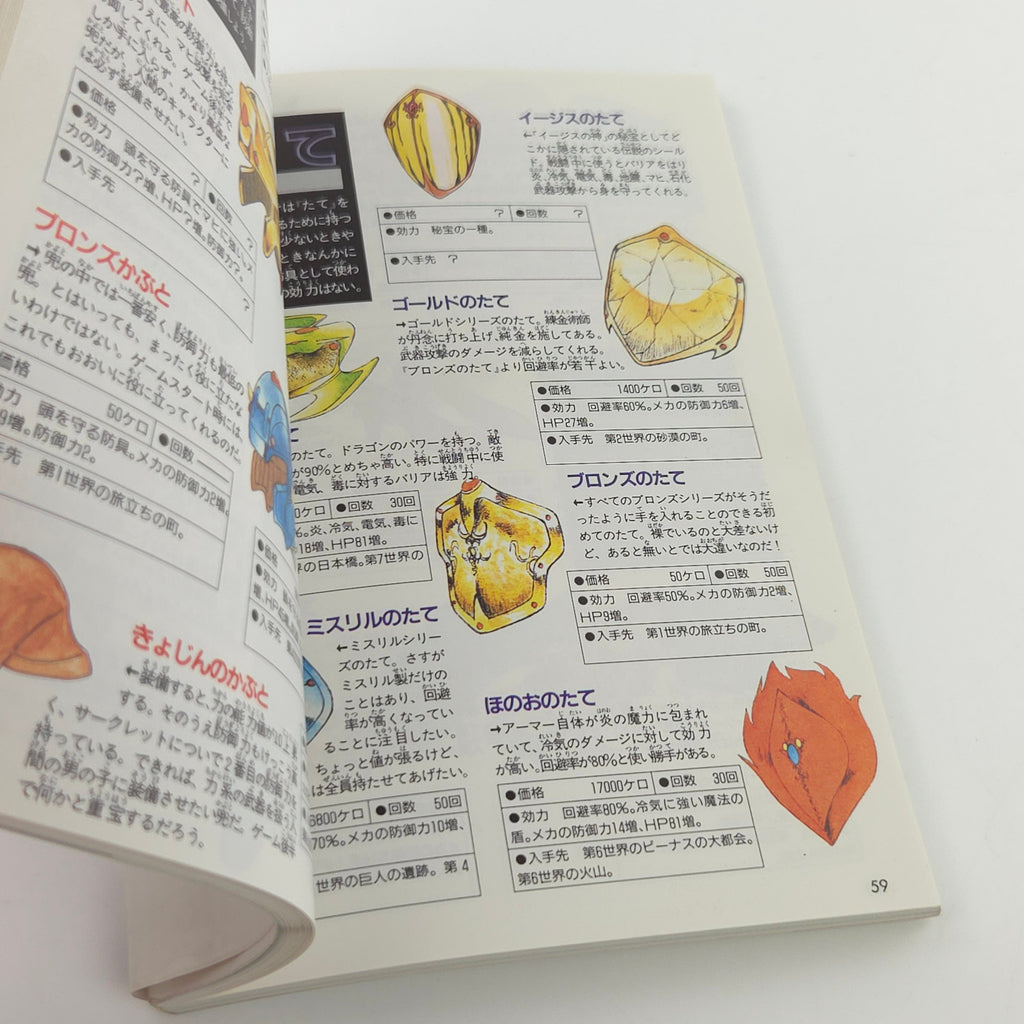 しか手に入らず、かなり貴重な
兜だが、人間のキャラクターに
は必ず装備させたい。
●価格 ？ ●回数 ？
●効力 頭を守る防具でマヒに強い。メ
カの防御力？増、HP？増。防御力？。
●入手先 ？
ブロンズかぶと
→兜の中では一番安く、防御力も最低の
兜。とはいっても、まったく役に立たな
いわけではない。ゲームスタート時には、
これでもおおいに役に立ってくれるのだ
価格 50ケロ ●回数
効力 頭を守る防具。メカの防御力2増、
9増。防御力2。
手先 第1世界の旅立ちの町。
きょじんのかぶと
←装備すると、力の能力値が10上昇
する。そのうえ防御力も
く、サークレットについで2番目の防御力を
持っている。できれば、力系の武器を扱う人
間の男の子に装備させたい兜だ。ゲーム後半
で何かと重宝するだろう。
て
は『たて』を
るために持つ
少ないときや
ときなんかに
具として使わ
の効力はない。
イージスのたて
←『イージスの神』の秘宝としてど
こかに隠されている伝説のシール
ド。戦闘中に使うとバリアをはり
炎、冷気、電気、毒、地震、マヒ、石化
武器攻撃から身を守ってくれる。
●価格 ？ ●回数 ？
●効力 秘宝の一種。
●入手先 ？
ゴールドのたて
→ゴールドシリーズのたて。錬金術師
が丹念に打ち上げ、純金を施してある。
武器攻撃のダメージを減らしてくれる。
『ブロンズのたて』より回避率が若干よい。
●価格 1400ケロ ●回数 50回
●効力 回避率60%。メカの防御力6増、
HP27増。
●入手先 第2世界の砂漠の町。
のたて。ドラゴンのパワーを持つ。敵
が90%とめちゃ高い。特に戦闘中に使
電気、毒に対するバリアは強力。
0ケロ ●回数 30回
%。炎、冷気、電気、毒に
18増、HP81増。
界の日本橋。第7世界の
ブロンズのたて
←すべてのブロンズシリーズがそうだ
ったように手を入れることのできる初
めてのたて。裸でいるのと大差ないけ
ど、あると無いとでは大違いなのだ！
●価格 50ケロ ●回数 50回
●効力 回避率50%。メカの防御力2増、
HP9増。
●入手先 第1世界の旅立ちの町。
ミスリルのたて
←ミスリルシリー
ズのたて。さすが
ミスリル製だけの
ことはあり、回避
率が高くなってい
ることに注目したい。
ちょっと値が張るけど、
は全員持たせてあげたい。
6800ケロ ●回数 50回
70%。メカの防御力10増、
世界の巨人の遺跡。第4
ほのおのたて
→アーマー自体が炎の魔力に包まれ
ていて、冷気のダメージに対して効力
が高い。回避率が80%と使い勝手がある。
●価格 17000ケロ ●回数 30回
●効力 回避率80%。冷気に強い魔法の
盾。メカの防御力14増、HP81増。
●入手先 第6世界のビーナスの大都会。
第6世界の火山。
59